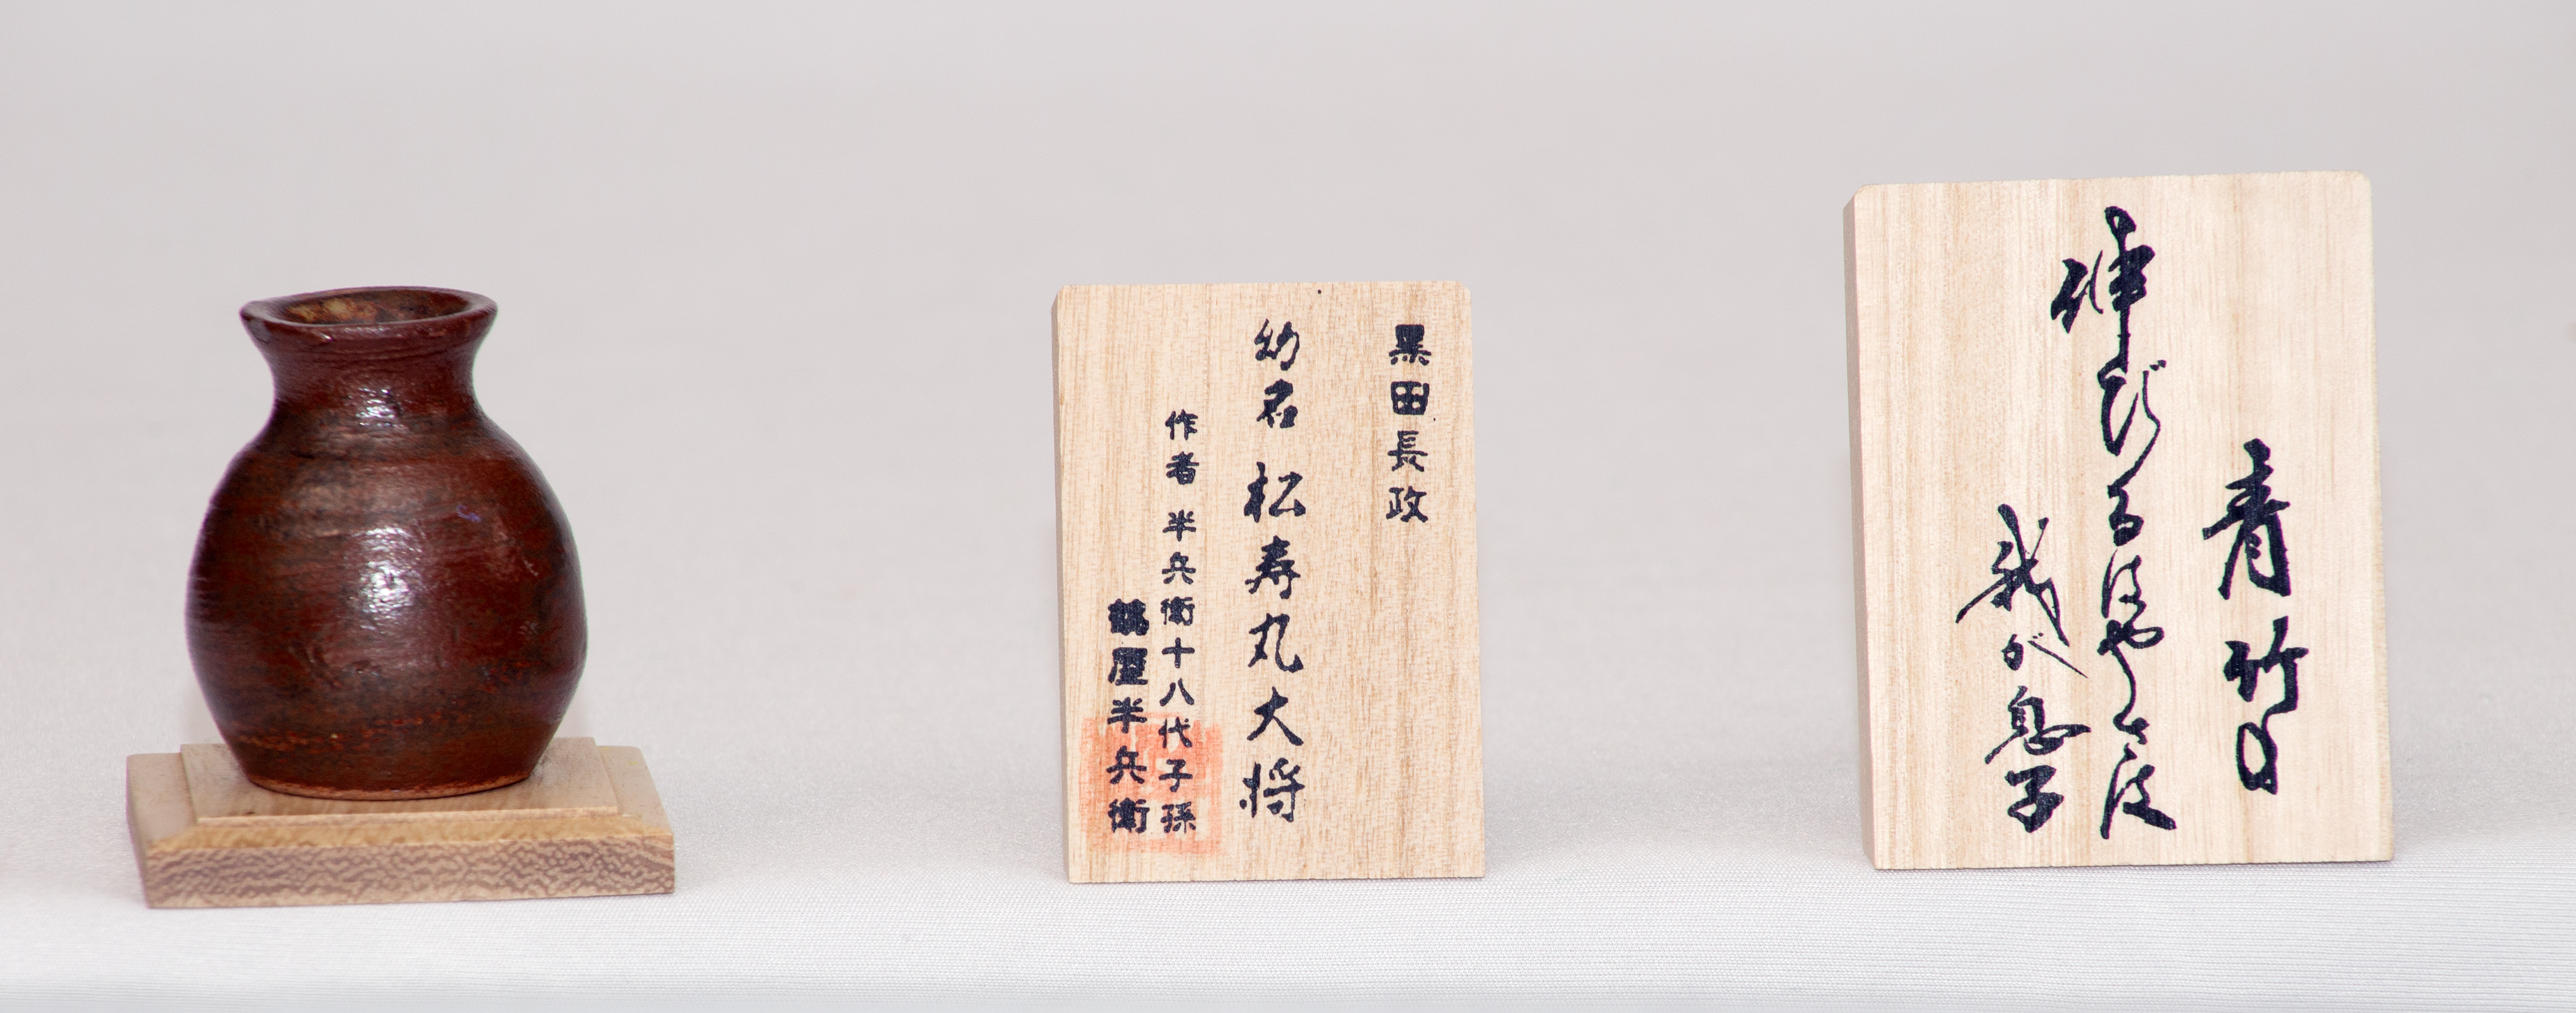 黒田長政
幼名 松寿丸大将
作者 半兵衛十八代子孫
鶴屋半兵衛
青竹の
伸びるはやさは
我が息子